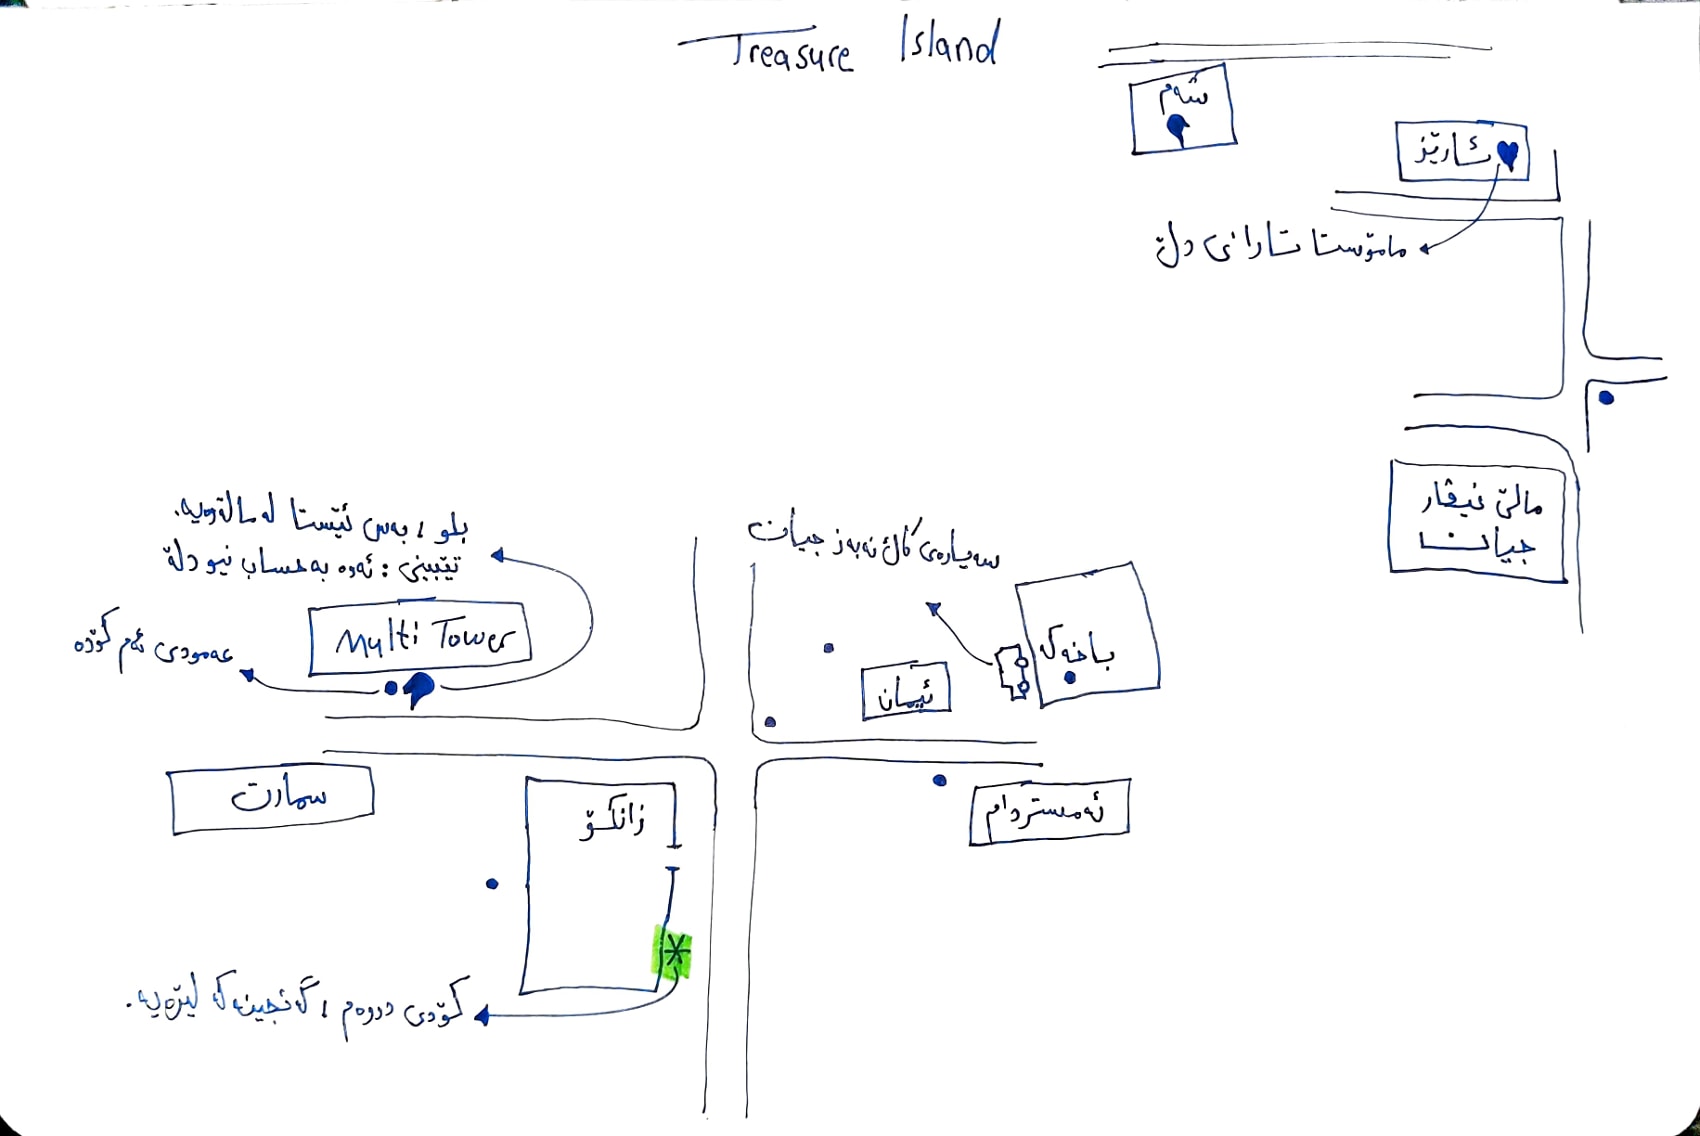 Treasure Island
شەم
ئارێز
مامۆستا تارا نی دڵ
ماڵێ نیڤار
جیان
بلو ، بەس ئێستا لە ماڵەوەیە.
تێبینی : ئەوە بە حساب نیو دڵە
Multi Tower
عەمودی ئەم کۆدە
سەیارەی کاک نەبەز جیان
باخەکە
ئیسان
سمارت
زانکۆ
ئەمستردام
کۆدی دووەم ، گەنجینەکە لێرەیە.